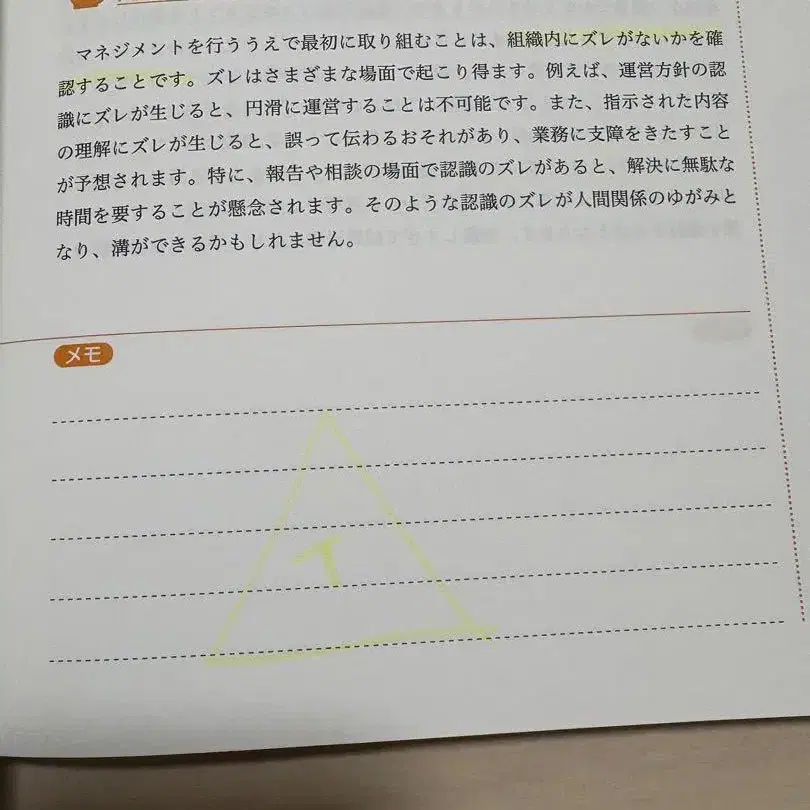 マネジメントを行ううえで最初に取り組むことは、組織内にズレがないかを確
認することです。ズレはさまざまな場面で起こり得ます。例えば、運営方針の認
識にズレが生じると、円滑に運営することは不可能です。また、指示された内容
の理解にズレが生じると、誤って伝わるおそれがあり、業務に支障をきたすこと
が予想されます。特に、報告や相談の場面で認識のズレがあると、解決に無駄な
時間を要することが懸念されます。そのような認識のズレが人間関係のゆがみと
なり、溝ができるかもしれません。
メモ
T